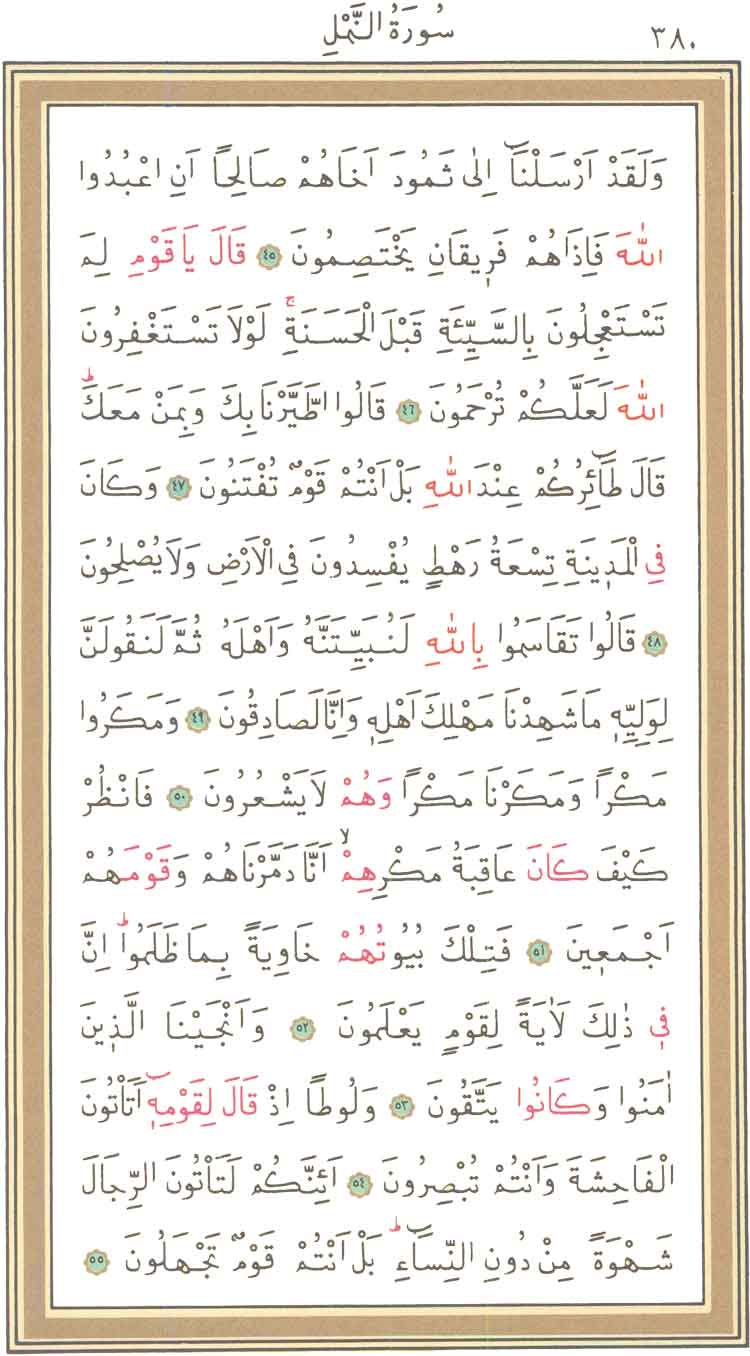 سُورَةُ النَّمْلِ
٣٨٠
وَلَقَدْ اَرْسَلْنَٓا اِلٰى ثَمُودَ اَخَاهُمْ صَالِحًا اَنِ اعْبُدُوا
اللّٰهَ فَاِذَاهُمْ فَرِيقَانِ يَخْتَصِمُونَ ٤٥ قَالَ يَاقَوْمِ لِمَ
تَسْتَعْجِلُونَ بِالسَّيِّئَةِ قَبْلَ الْحَسَنَةِۚ لَوْلَا تَسْتَغْفِرُونَ
اللّٰهَ لَعَلَّكُمْ تُرْحَمُونَ ٤٦ قَالُوا اطَّيَّرْنَا بِكَ وَبِمَنْ مَعَكَۜ
قَالَ طَٓائِرُكُمْ عِنْدَ اللّٰهِ بَلْ اَنْتُمْ قَوْمٌ تُفْتَنُونَ ٤٧ وَكَانَ
فِي الْمَدِينَةِ تِسْعَةُ رَهْطٍ يُفْسِدُونَ فِي الْاَرْضِ وَلَا يُصْلِحُونَ
٤٨ قَالُوا تَقَاسَمُوا بِاللّٰهِ لَنُبَيِّتَنَّهُ وَاَهْلَهُ ثُمَّ لَنَقُولَنَّ
لِوَلِيِّهٖ مَا شَهِدْنَا مَهْلِكَ اَهْلِهٖ وَاِنَّا لَصَادِقُونَ ٤٩ وَمَكَرُوا
مَكْرًا وَمَكَرْنَا مَكْرًا وَهُمْ لَا يَشْعُرُونَ ٥٠ فَانْظُرْ
كَيْفَ كَانَ عَاقِبَةُ مَكْرِهِمْۙ اَنَّا دَمَّرْنَاهُمْ وَقَوْمَهُمْ
اَجْمَعِينَ ٥١ فَتِلْكَ بُيُوتُهُمْ خَاوِيَةً بِمَا ظَلَمُواۜ اِنَّ
فِي ذٰلِكَ لَاٰيَةً لِقَوْمٍ يَعْلَمُونَ ٥٢ وَاَنْجَيْنَا الَّذِينَ
اٰمَنُوا وَكَانُوا يَتَّقُونَ ٥٣ وَلُوطًا اِذْ قَالَ لِقَوْمِهٖٓ اَتَأْتُونَ
الْفَاحِشَةَ وَاَنْتُمْ تُبْصِرُونَ ٥٤ اَئِنَّكُمْ لَتَأْتُونَ الرِّجَالَ
شَهْوَةً مِنْ دُونِ النِّسَٓاءِۜ بَلْ اَنْتُمْ قَوْمٌ تَجْهَلُونَ ٥٥